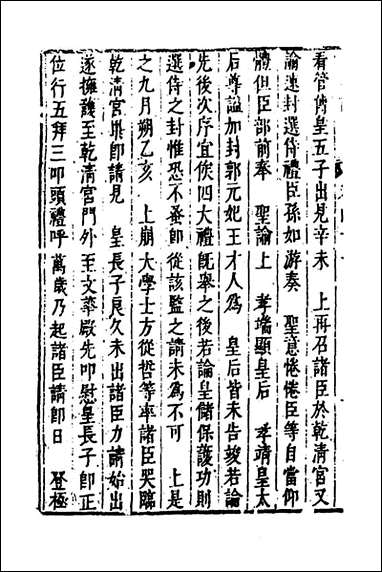 看管傳皇五子出見辛未　上再召諸臣於乾清宮又
諭速封選侍禮臣孫如游奏　聖意惓惓臣等自當仰
體但臣部前奉　聖諭上　孝端顯皇后　孝靖皇太
后尊謚加封郭元妃王才人為　皇后皆未告竣若論
先後次序宜俟四大禮旣舉之後若論皇儲保護功則
選侍之封惟恐不蚤卽從該監之請未為不可　上是
之九月朔乙亥　上崩大學士方從哲等率諸臣哭臨
乾清宮畢卽請見　皇長子良久未出諸臣力請始出
遂擁護至乾清宮門外　至文華殿先叩慰皇長子卽正
位行五拜三叩頭禮呼　萬歲乃起諸臣請卽日　登極